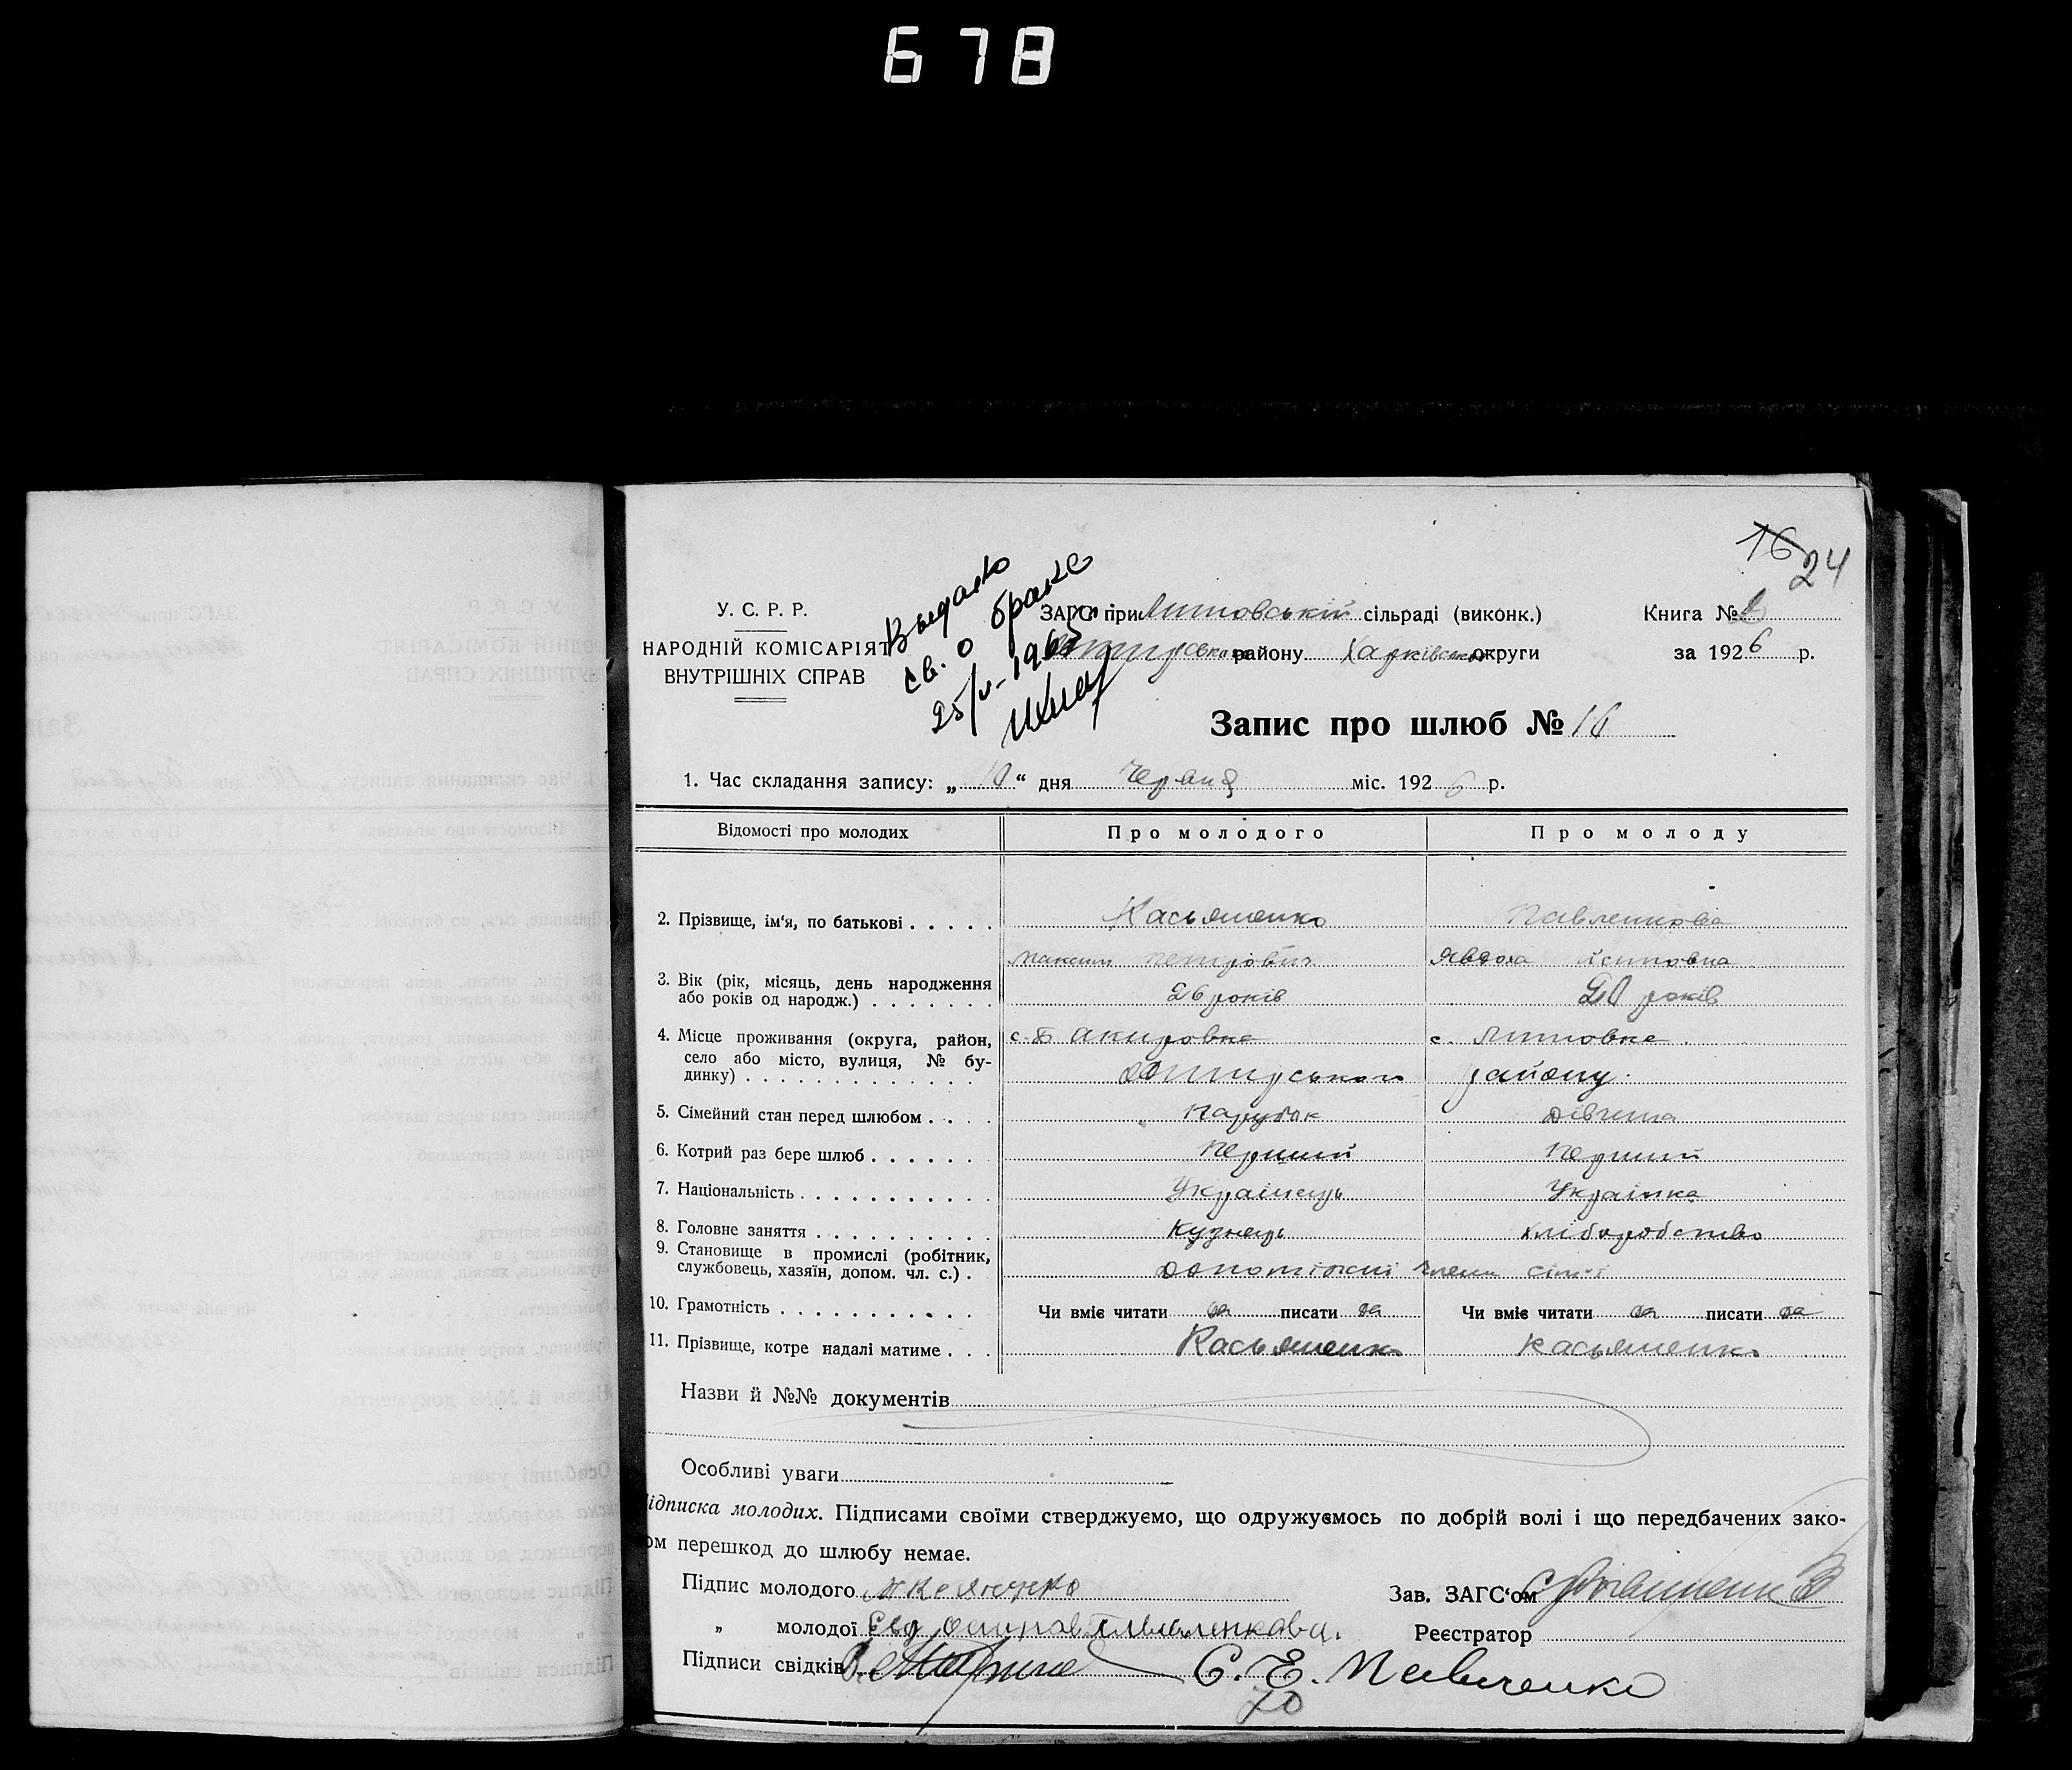 678
16 24
Выдано
св. о браке
25/V-1965
У. С. Р. Р.
НАРОДНІЙ КОМІСАРІЯТ
ВНУТРІШНІХ СПРАВ
ЗАГС при Липовській сільраді (виконк.)
району Харківської округи
Книга №
за 1926 р.
Запис про шлюб № 16
1. Час складання запису: „10“ дня Червня міс. 1926 р.
Відомості про молодих Про молодого Про молоду
2. Прізвище, ім‘я, по батькові . . . . . Касьяненко Павленкова
Максим Петрович Явдоха Осиповна
3. Вік (рік, місяць, день народження
або років од народж.) . . . . . . . 26 років 20 років
4. Місце проживання (округа, район,
село або місто, вулиця, № бу-
динку) . . . . . . . . . . . . .
с. Липовке
району.
5. Сімейний стан перед шлюбом . . . . Парубок дівчина
6. Котрий раз бере шлюб . . . . . . Перший Перший
7. Національність . . . . . . . . . . . Українець Українка
8. Головне заняття . . . . . . . . . . Кузнець хліборобство
9. Становище в промислі (робітник,
службовець, хазяїн, допом. чл. с.) . допоміжні члени сім'ї
10. Грамотність . . . . . . . . . . . Чи вміє читати да писати да Чи вміє читати да писати да
11. Прізвище, котре надалі матиме . . . Касьяненко Касьяненко
Назви й №№ документів
Особливі уваги
ідписка молодих. Підписами своїми стверджуємо, що одружуємось по добрій волі і що передбачених зако-
ом перешкод до шлюбу немає.
Підпис молодого
Зав. ЗАГС‘ом
„ молодої Евд Осипов Павленкова.
Реєстратор
Підписи свідків С. Е. Павленко
70